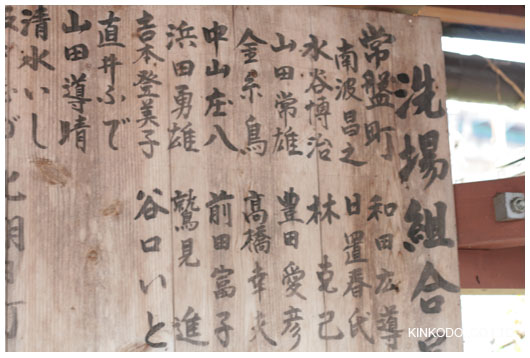 洗場組合
常盤町
南波昌之 和田広導
水谷博治 日置春氏
山田常雄 林克己
金糸鳥 豊田愛彦
中山庄八 高橋幸夫
浜田勇雄 前田富子
吉本登美子 鷲見進
直井ふで 谷口いと
山田導晴
清水いし
KINKODO